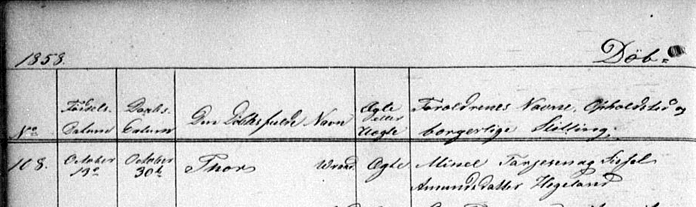 1858.
Döb-
No
Födsels-
Datum
Daabs-
Datum
Den Döbtes fulde Navn
Ægte
eller
Uægte
Forældrenes Navne, Opholdsted og
borgerlige Stilling.
108.
October
13de
October
30te
Thor
Ægte
Torgersen og Sissel
Amundsdatter Hegeland